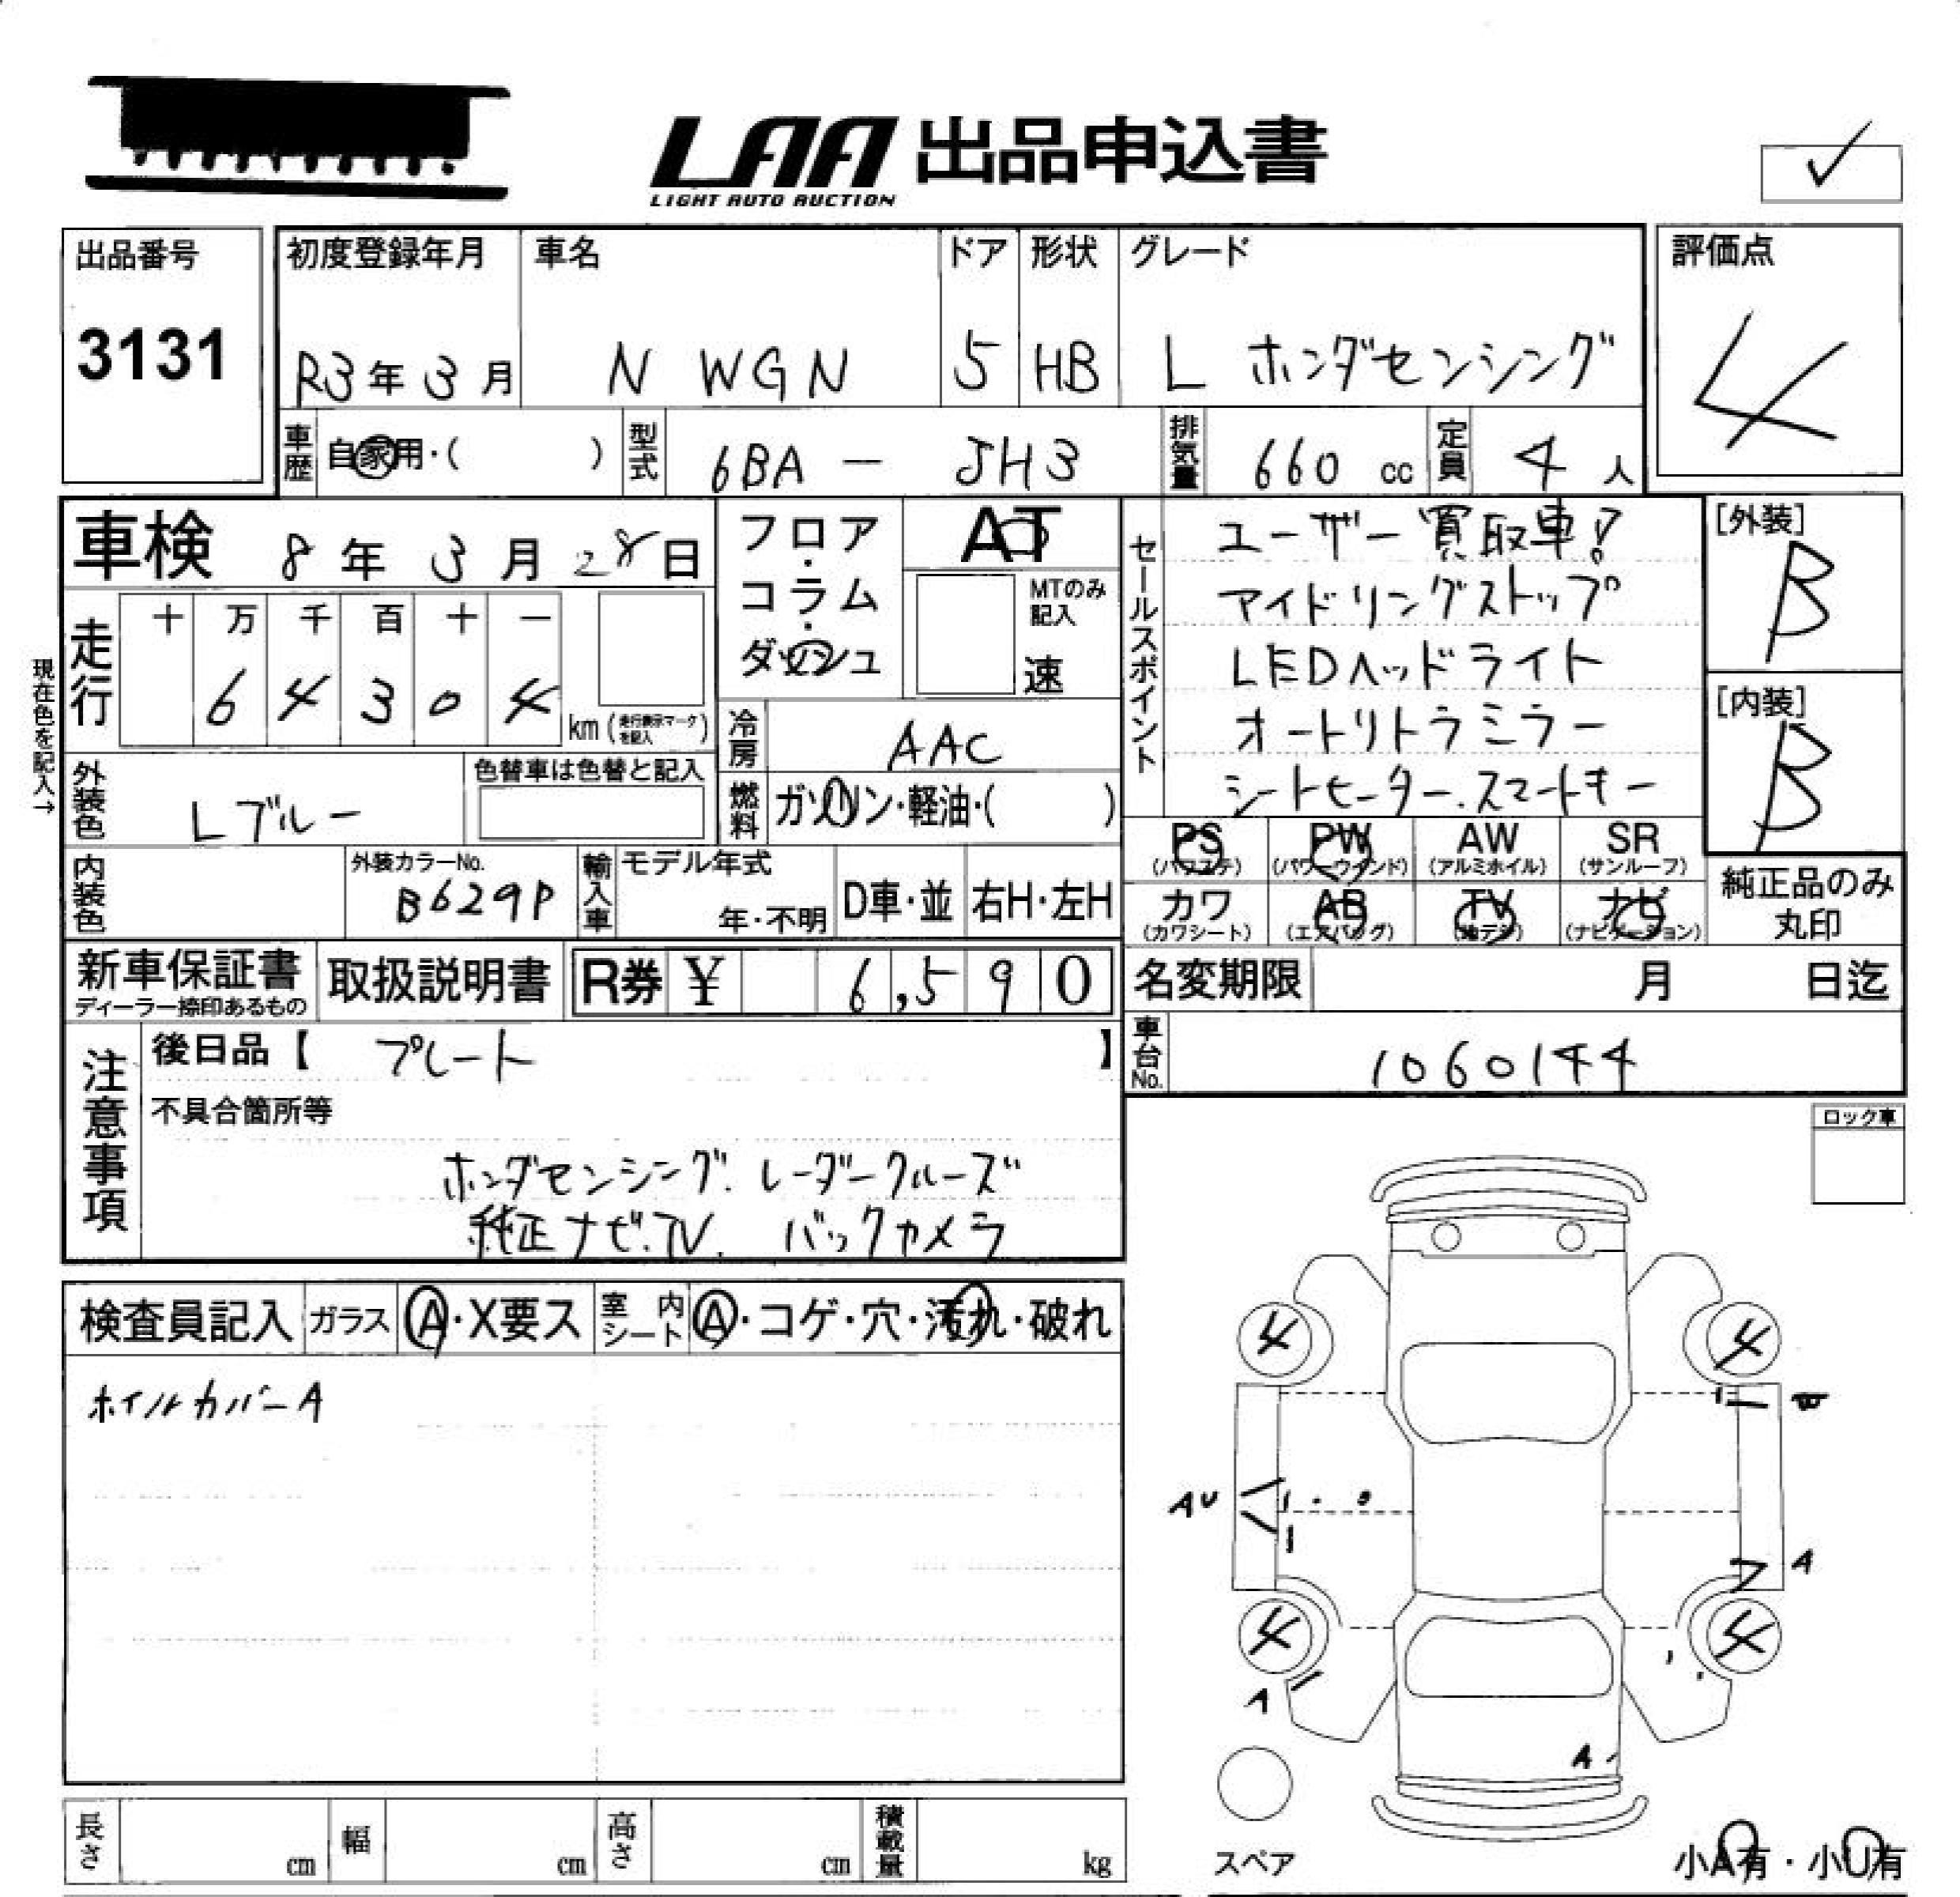 LAA 出品申込書
LIGHT AUTO AUCTION
出品番号
3131
初度登録年月
R3年3月
車名
N WGN
ドア
5
形状
HB
グレード
L ホンダセンシング
評価点
4
車歴
自家用・( )
型式
6BA - JH3
排気量
660 cc
定員
4 人
車検 8年3月28日
フロア・コラム・ダッシュ
AT
MTのみ記入
速
セールスポイント
ユーザー買取車!
アイドリングストップ
LEDヘッドライト
オートリトラミラー
シートヒーター.スマートキー
[外装]
B
[内装]
B
現在色を記入→
走行
十 万 千 百 十 一
6 4 3 0 4
km(走行表示マークを記入)
冷房
AAC
外装色
Lブルー
色替車は色替と記入
燃料
ガソリン・軽油・( )
PS
(パワステ)
PW
(パワーウインド)
AW
(アルミホイル)
SR
(サンルーフ)
カワ
(カワシート)
AB
(エアバッグ)
TV
(地デジ)
ナビ
(ナビゲーション)
純正品のみ
丸印
内装色
外装カラーNo.
B629P
輸入車
モデル年式
年・不明
D車・並
右H・左H
新車保証書
ディーラー捺印あるもの
取扱説明書
R券 ¥ 6,590
名変期限 月 日迄
車台No.
1060144
注意事項
後日品【 プレート 】
不具合箇所等
ホンダセンシング.レーダークルーズ
純正ナビ.TV. バックカメラ
ロック車
検査員記入
ガラス
A・X要ス
室内シート
A・コゲ・穴・汚れ・破れ
ホイルカバーA
4
4
AU
A
4
4
A
A
スペア
小A有・小U有
長さ cm
幅 cm
高さ cm
積載量 kg